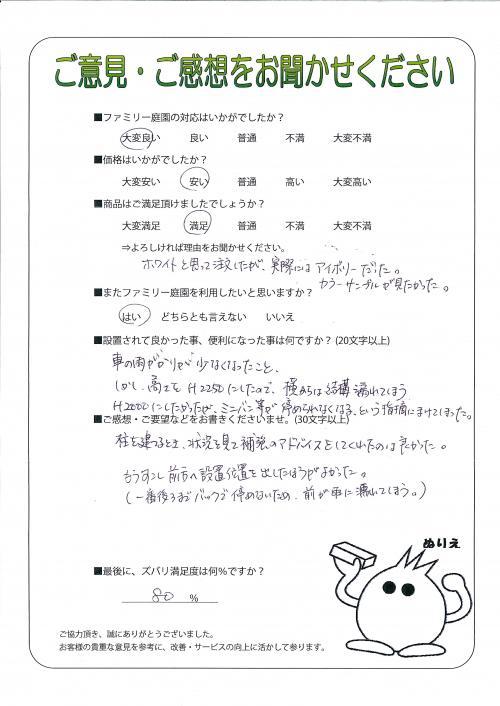 ご意見・ご感想をお聞かせください
■ファミリー庭園の対応はいかがでしたか？
大変良い 良い 普通 不満 大変不満
■価格はいかがでしたか？
大変安い 安い 普通 高い 大変高い
■商品はご満足頂けましたでしょうか？
大変満足 満足 普通 不満 大変不満
⇒よろしければ理由をお聞かせください。
ホワイトと思って注文したが、実際にはアイボリーだった。
カラーサンプルが見たかった。
■またファミリー庭園を利用したいと思いますか？
はい どちらとも言えない いいえ
■設置されて良かった事、便利になった事は何ですか？(20文字以上)
車の雨がかりが少なくなったこと、
しかし、高さをH2250にしたので、横からは結構濡れてしまう
H2000にしたかったが、ミニバン等が停められなくなる、という指摘にまけてしまった。
■ご感想・ご要望などをお書きくださいませ。(30文字以上)
柱を建てるとき、状況を見て補強のアドバイスをしてくれたのは良かった。
もうすこし前方へ設置位置を出したほうがよかった。
(一番後ろまでバックで停めないため、前が雨に濡れてしまう。)
ぬりえ
■最後に、ズバリ満足度は何％ですか？
80 %
ご協力頂き、誠にありがとうございました。
お客様の貴重な意見を参考に、改善・サービスの向上に活かして参ります。